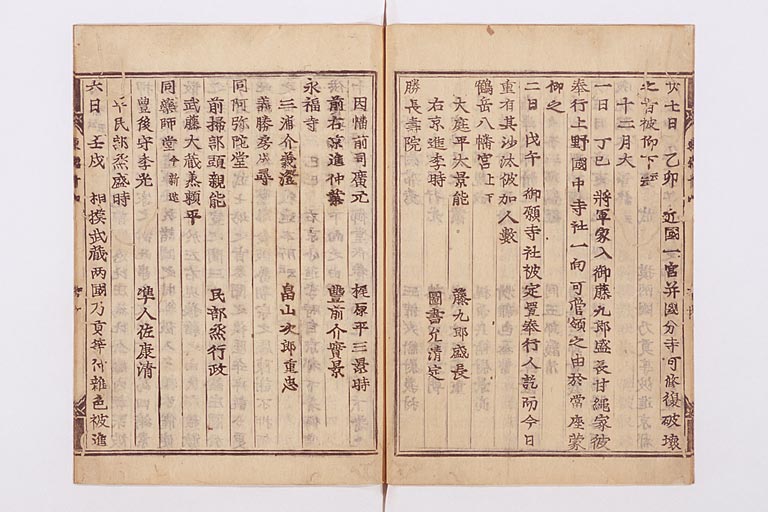 廿七日 乙卯 近國一宮并國分寺可修復破壞
之旨被仰下云云
十二月大
一日 丁巳 將軍家入御藤九郎盛長甘繩家彼
奉行上野國中寺社一向可管領之由於當座蒙
仰之
二日 戊午 御願寺社被定置奉行人訖而今日
重有其沙汰被加人數
鶴岳八幡宮 上下
大庭平太景能 藤九郎盛長
右京進季時 圖書允清定
勝長壽院
因幡前司廣元 梶原平三景時
前右京進仲業 豐前介實景
永福寺
三浦介義澄 畠山次郎重忠
義勝房成尋
同阿弥陀堂
前掃部頭親能 民部烝行政
武藤大蔵烝頼平
同藥師堂 今新造
豐後守季光 隼人佐康清
平民部烝盛時
六日 壬戌 相摸武蔵两國乃貢等付雜色被進